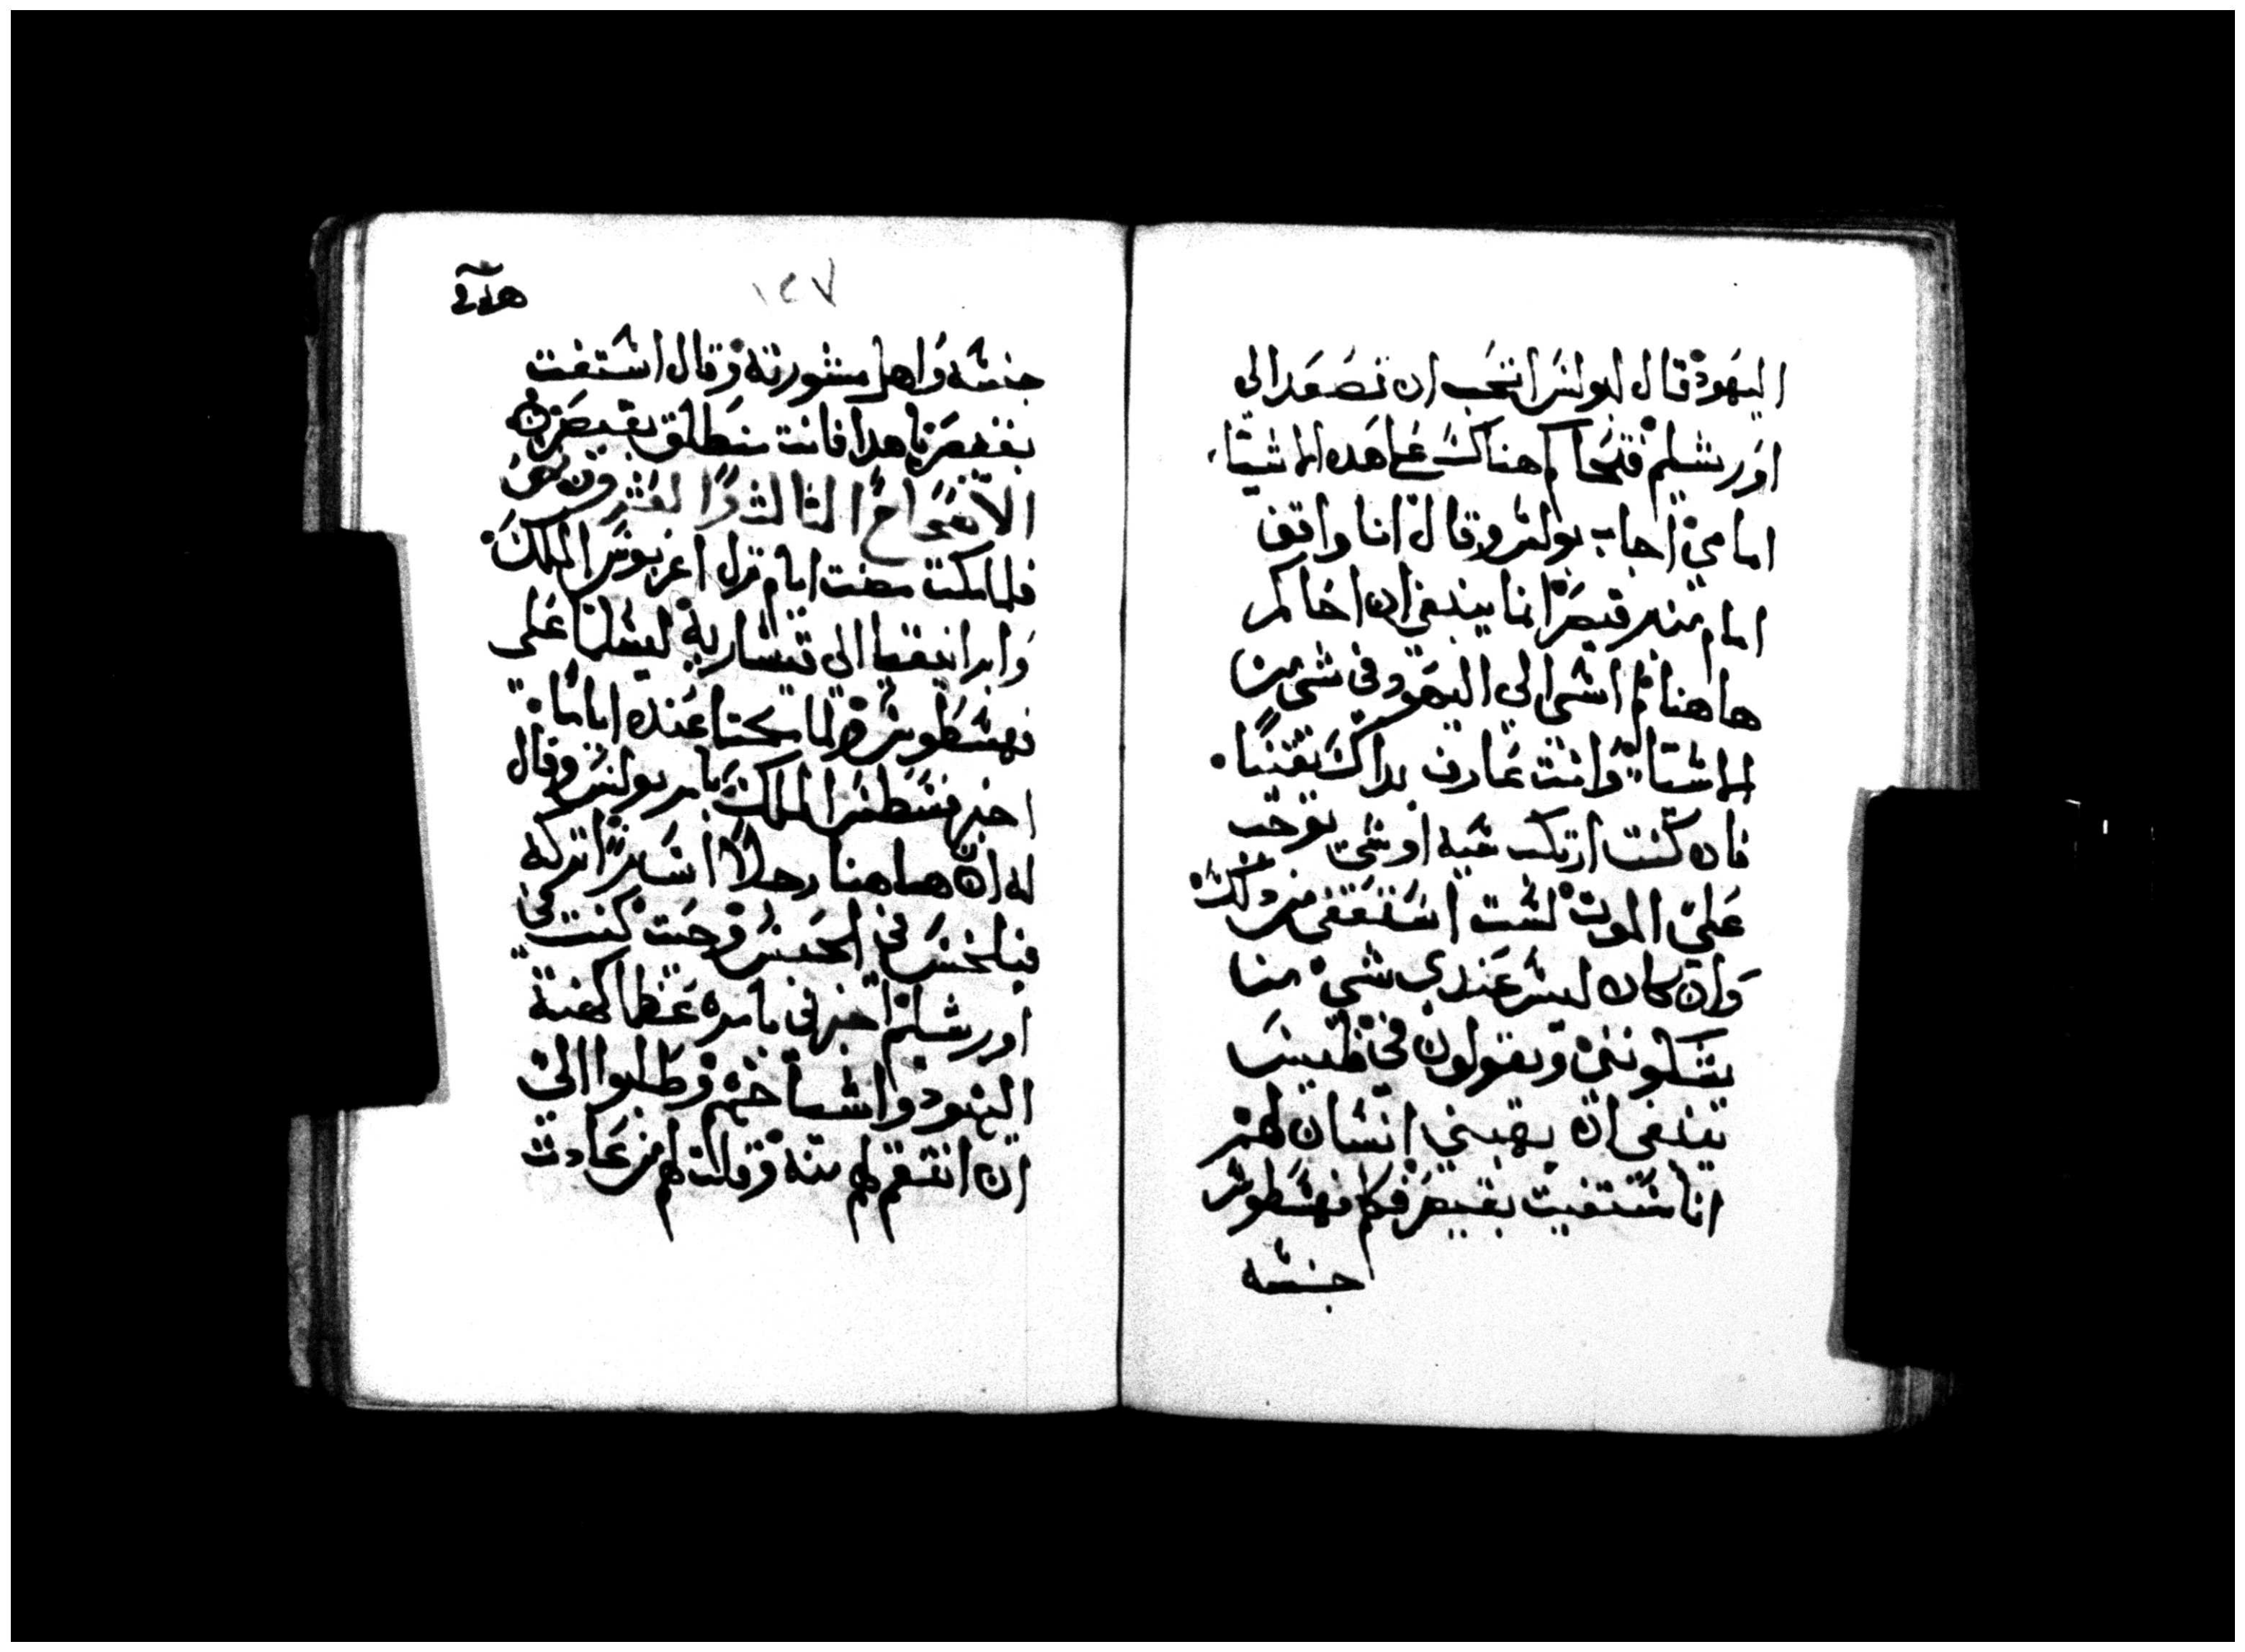 اليهود قال لبولس اتحب ان تصعد الى
اورشليم فتحاكم هناك على هده الاشيا
امامي اجاب بولس وقال انا واقف
امام منبر قيصر انما ينبغي ان احاكم
هاهنا لم اسي الي اليهود في شي من
الاشيا وانت عارف بداك يقينا
فان كنت ارتكبت شيه او شي يوجب
علي الموت لست استعفى من دلك
وان كان ليس عندي شي مما
يشكونني ويقولون في فليس
ينبغي ان يهبني انسان لهم
انا استغيت بقيصر فكلم فهسطوس
جنسه
١٤٧
جنسه واهل مشورته وقال استغت
بقيصر يا هدا فانت منطلق بقيصر
الاصحاح الثالث والعشرون
فلما مكت مضت ايام نزل اغربوس الملك
وابرانيقيا الى قيسارية ليسلما على
فهسطوس فلما مكتا عنده اياما
اخبر فهسطس الملك بامر بولس وقال
له ان هاهنا رجلا اسيرا تركه
فيلخس في الحبس وحيت كنت في
اورشليم اخبرني بامره عظما كهنة
اليهود واشياخهم وطلبوا الي
ان انتقم لهم منه وقلت لهم من عادت